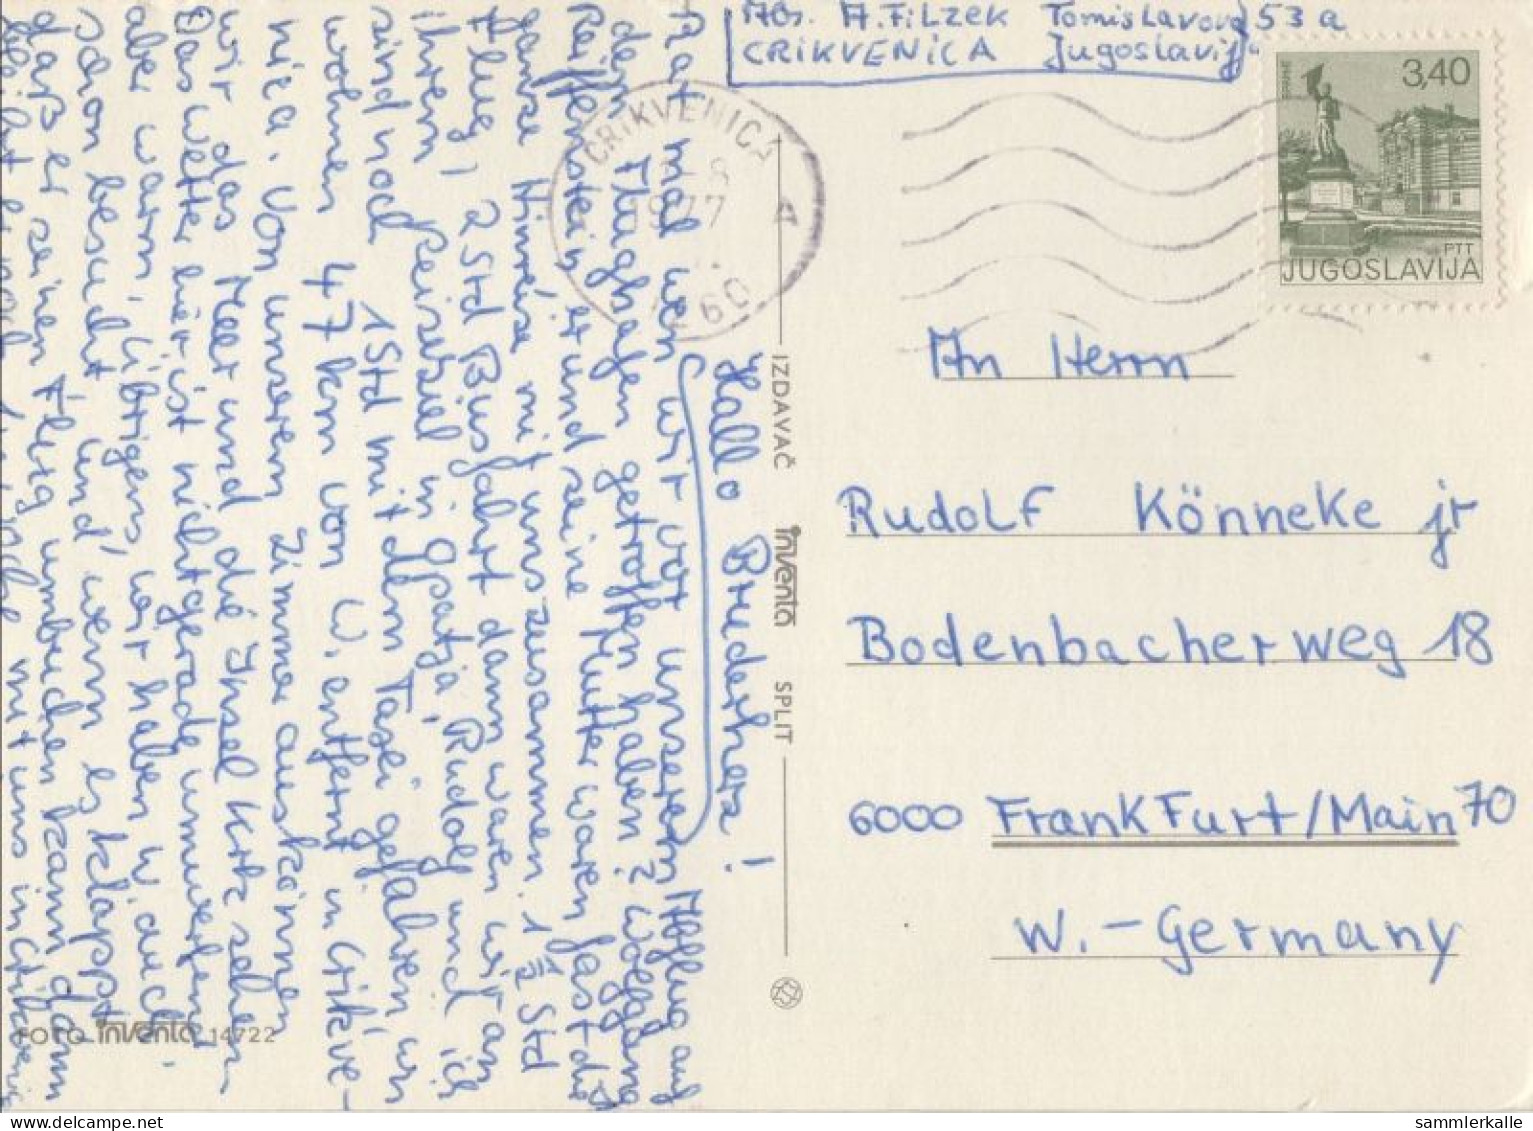 Abs. A. Filzek Tomislavova 53a
CRIKVENICA Jugoslavija
CRIKVENICA
1977
3,40
PTT
JUGOSLAVIJA
An Herrn
Rudolf Könneke jr
Bodenbacherweg 18
6000 Frankfurt/Main 70
W.-Germany
IZDAVAČ inventa SPLIT
Hallo Bruderherz!
Rat mal wen wir vor unserem Abflug auf
dem Flughafen getroffen haben? Wolfgang
Reiffenstein, er und seine Mutter waren fast die
ganze Hinreise mit uns zusammen. 1 1/2 Std
Flug, 2 Std Busfahrt dann waren wir an
ihrem Reiseziel in Opatja, Rudolf und ich
sind noch 1 Std mit dem Taxi gefahren, wir
wohnen 47 km von W. entfernt in Crikve-
nica. Von unserem Zimmer aus können
wir das Meer und die Insel Krk sehen
Das Wetter hier ist nicht gerade umwerfend
aber warm. Übrigens, wir haben W. auch
schon besucht und wenn es klappt
daß er seinen Flug umbuchen kann dann
mit uns in Crikvenica
FOTO inventa 14722
sammlerkalle.com